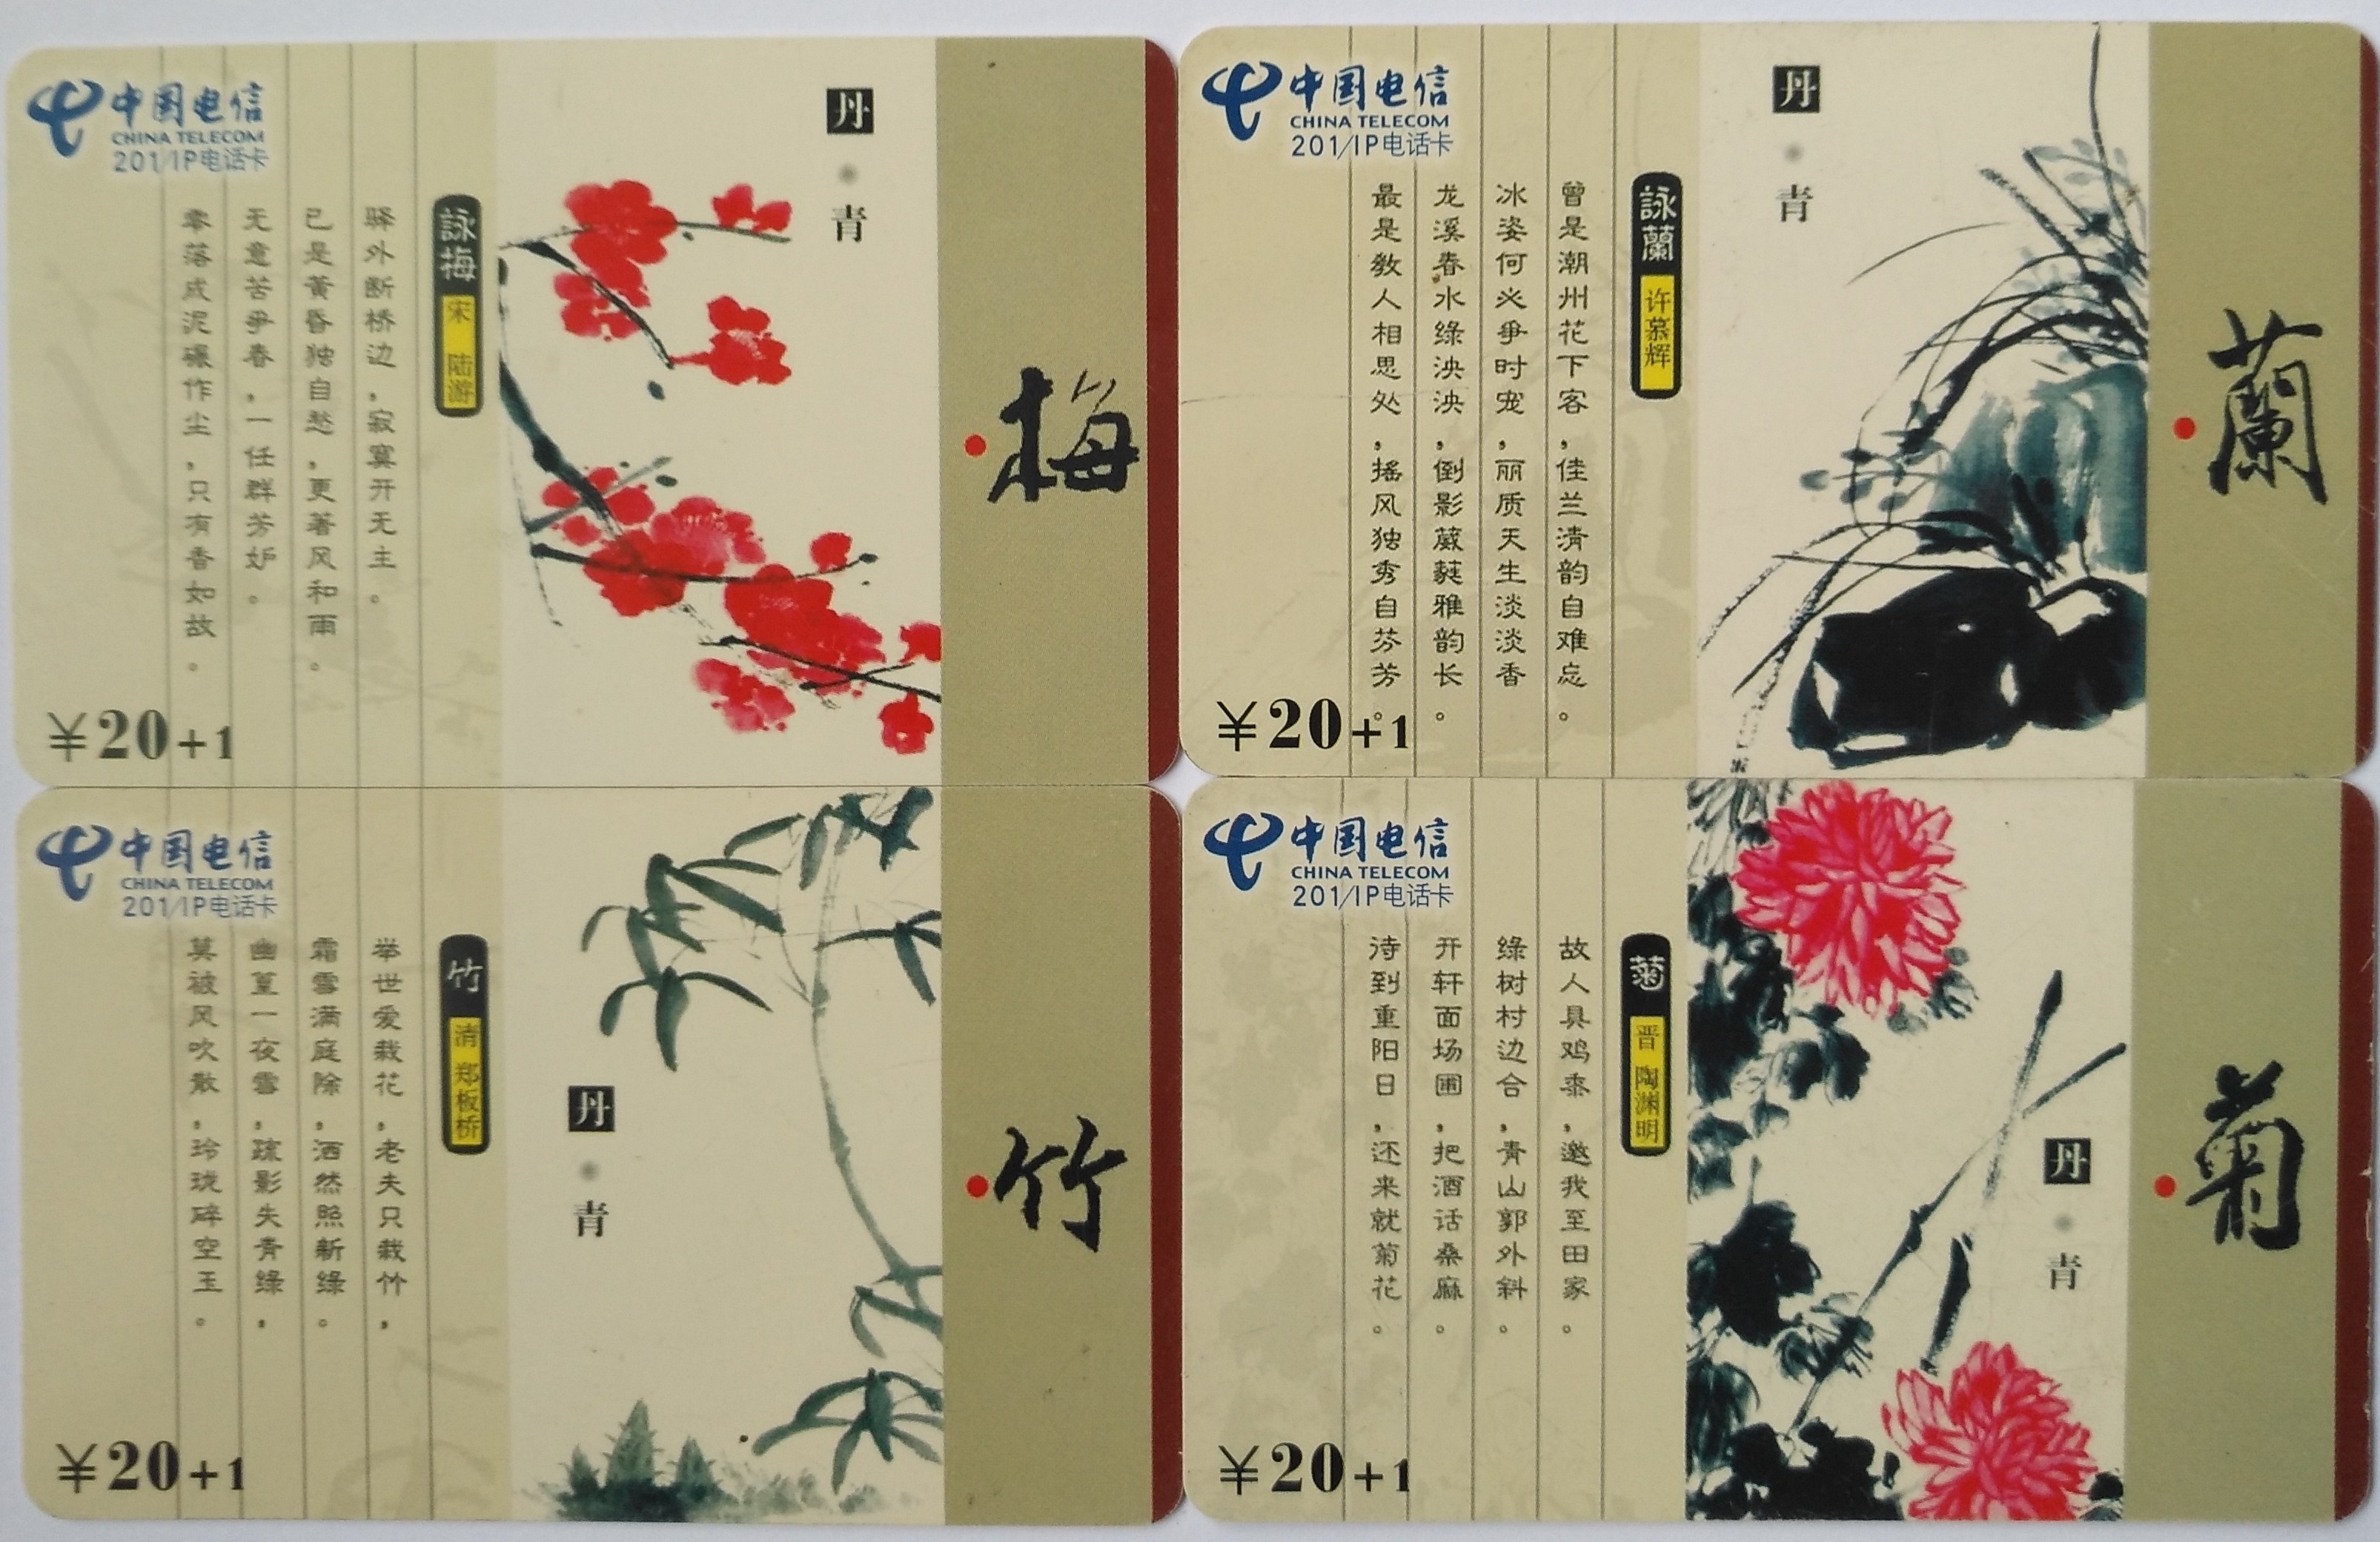 中国电信
CHINA TELECOM
201/IP电话卡
詠梅 宋 陆游
驿外断桥边,寂寞开无主。
已是黄昏独自愁,更著风和雨。
无意苦争春,一任群芳妒。
零落成泥碾作尘,只有香如故。
¥20+1
丹·青
梅
中国电信
CHINA TELECOM
201/IP电话卡
詠蘭 许慕辉
曾是潮州花下客,佳兰清韵自难忘。
冰姿何必争时宠,丽质天生淡淡香
龙溪春水绿泱泱,倒影葳蕤雅韵长。
最是教人相思处,摇风独秀自芬芳。
¥20+1
丹·青
蘭
中国电信
CHINA TELECOM
201/IP电话卡
竹 清 郑板桥
举世爱栽花,老夫只栽竹,
霜雪满庭除,洒然照新绿。
幽篁一夜雪,疏影失青绿,
莫被风吹散,玲珑碎空玉。
¥20+1
丹·青
竹
中国电信
CHINA TELECOM
201/IP电话卡
菊 晋 陶渊明
故人具鸡黍,邀我至田家。
绿树村边合,青山郭外斜。
开轩面场圃,把酒话桑麻。
待到重阳日,还来就菊花。
¥20+1
丹·青
菊